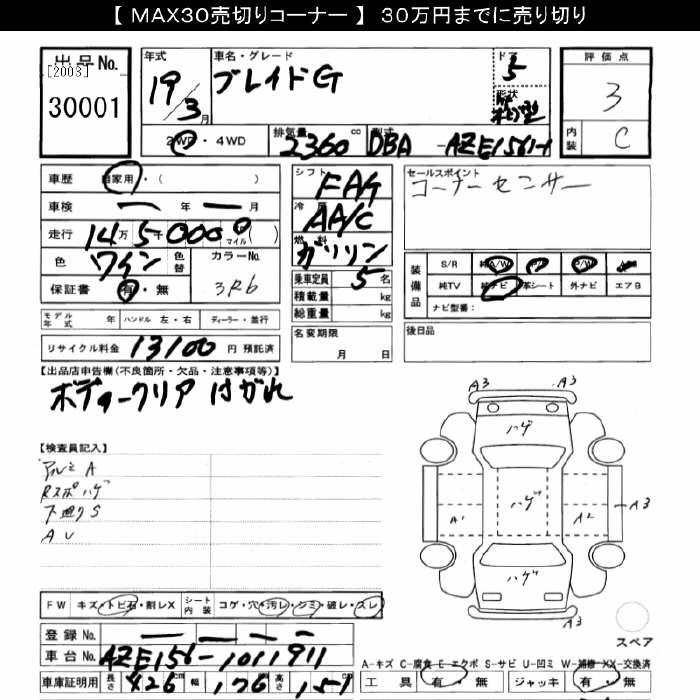 【 MAX30売切りコーナー 】 30万円までに売り切り
出品No.
[2003]
30001
年式
19/3月
車名・グレード
ブレイドG
ドア
5
形状
評価点
3
内装
C
2WD・4WD
排気量
2360cc
型式
DBA-AZE156H
車歴
自家用・( )
車検
ー 年 ー 月
走行
14万5千000マイル( )
色
ワイン
色替
カラーNo.
3R6
保証書
有・無
シフト
FAT
冷房
AA/C
燃料
ガソリン
乗車定員 5名
積載量 kg
総重量 kg
名変期限
月 日
セールスポイント
コーナーセンサー
装備品
S/R 純A/W P/S P/W
純TV 純ナビ 革シート 外ナビ エアB
ナビ型番:
後日品
モデル年式 年 ハンドル 左・右 ディーラー・並行
リサイクル料金 13100円 預託済
【出品店申告欄(不良箇所・欠品・注意事項等)】
ボディークリア はがれ
【検査員記入】
アルミA
Rスポ ハゲ
下廻りS
AU
A3 A3
ハゲ
A1 ハゲ A2 A3
ハゲ
A3
スペア
FW キズ・トビ石・割レX シート内装 コゲ・穴・汚レ・シミ・破レ・スレ
登録No. ー ー ー ー
車台No. AZE156-1011911
A-キズ C-腐食 E-エクボ S-サビ U-凹ミ W-補修 XX-交換済
車庫証明用 長さ 426 幅 176 高さ 151
工具 有・無 ジャッキ 有・無